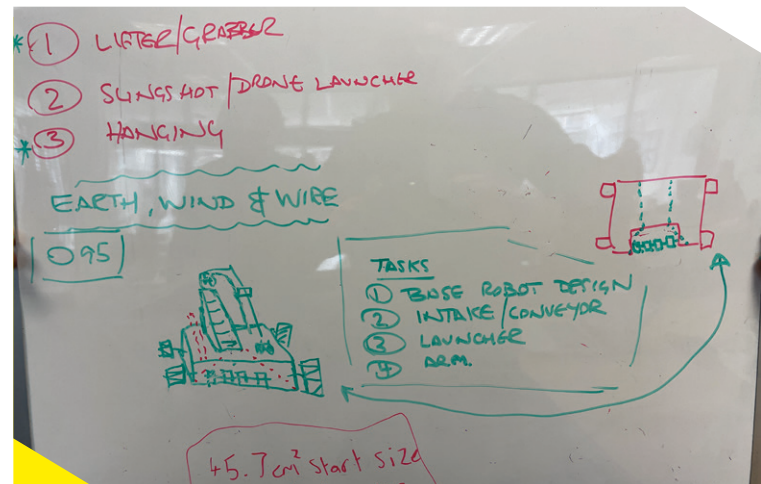 * 1 LIFTER/GRABBER
2 SLINGSHOT/DRONE LAUNCHER
* 3 HANGING
EARTH, WIND & WIRE
095
TASKS
1 BASE ROBOT DESIGN
2 INTAKE/CONVEYOR
3 LAUNCHER
4 ARM.
45.7cm² start size